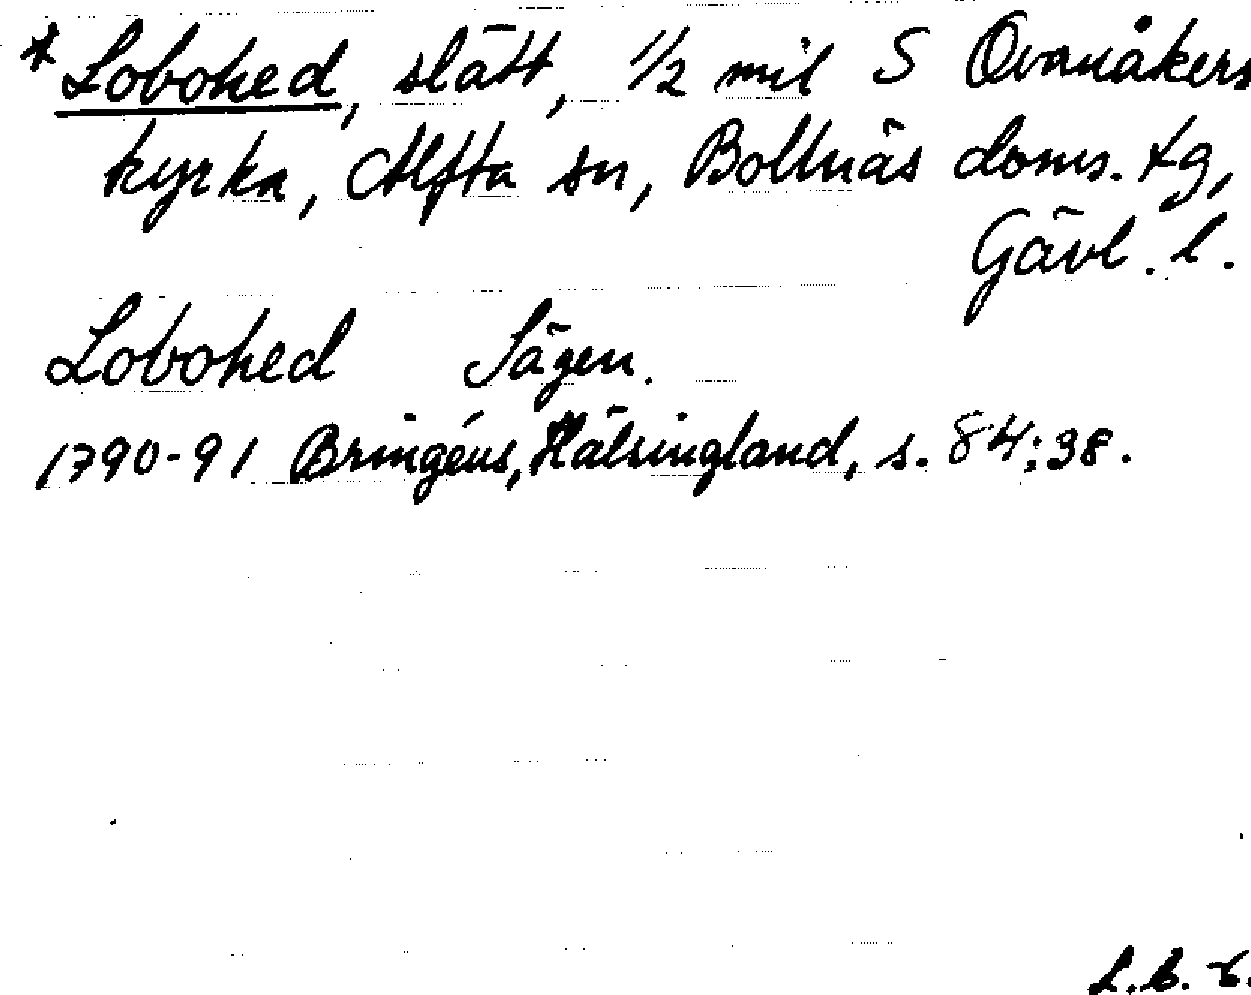 *Lobohed, slätt, 1/2 mil S Ovanåkers
kyrka, Alfta sn, Bollnäs doms. tg,
Gävl. l.
Lobohed Sägen.
1790-91 Bringéus, Hälsingland, s. 84:38.